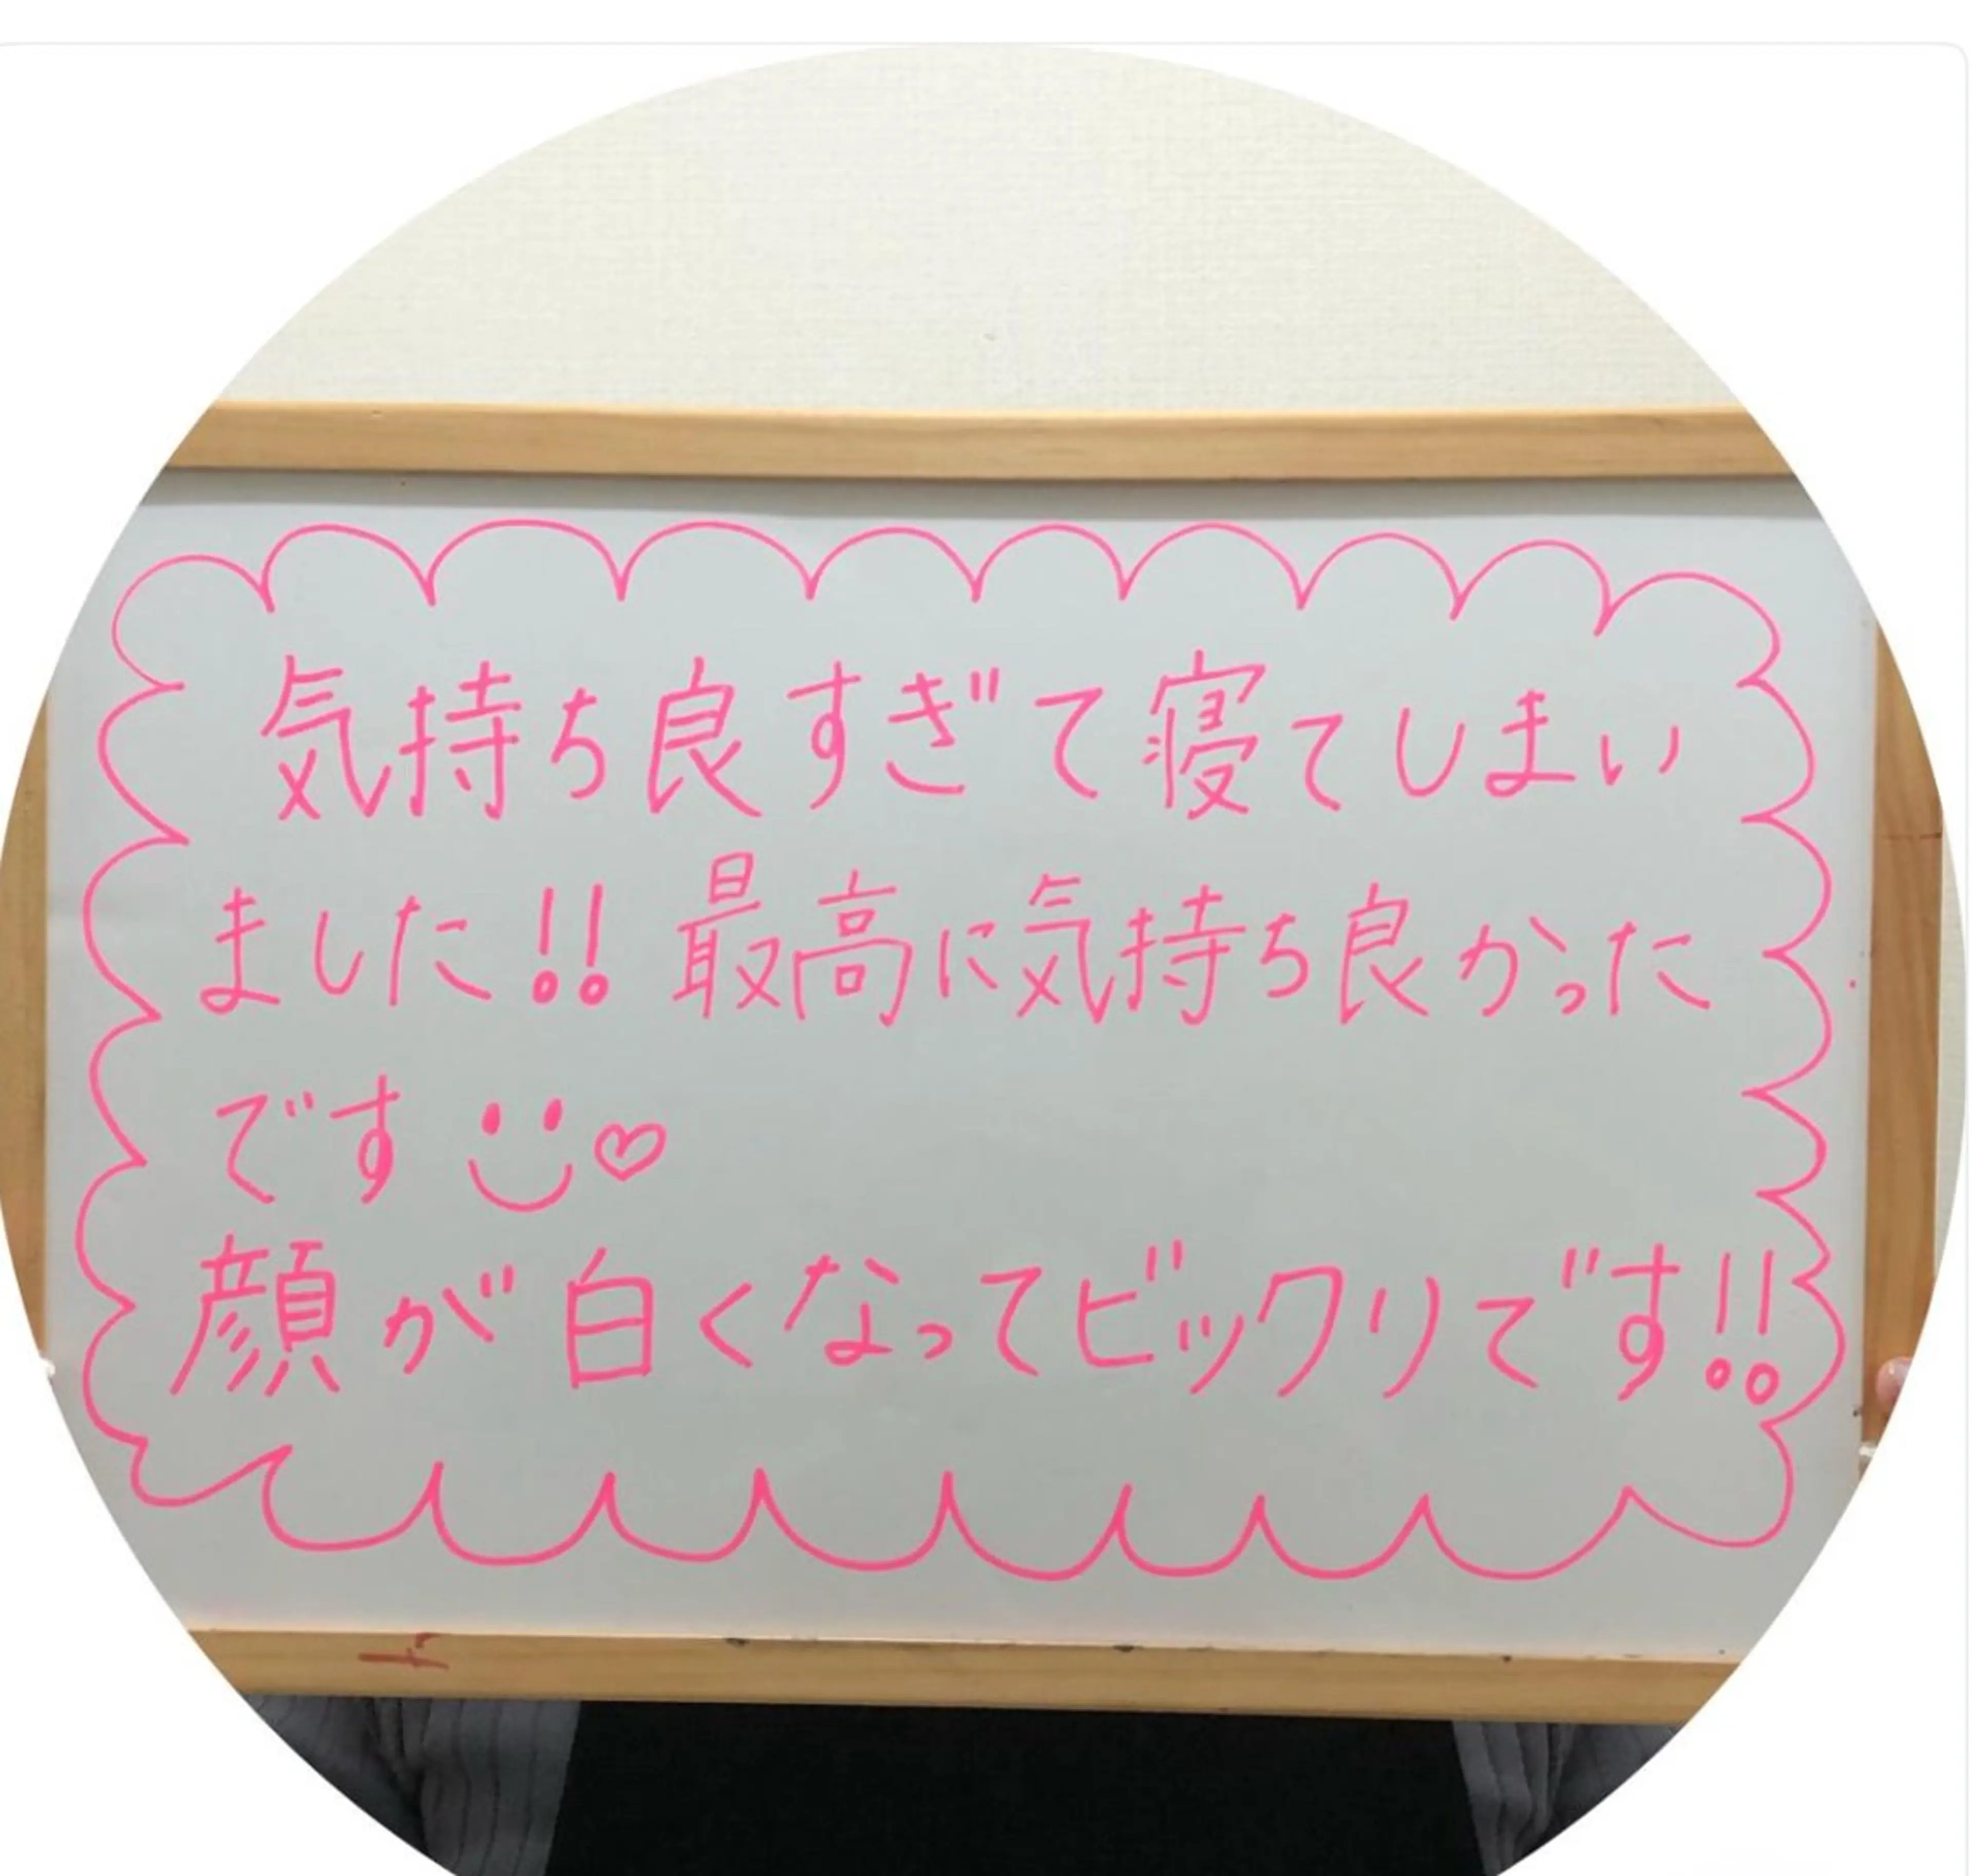 気持ち良すぎて寝てしまい
ました!! 最高に気持ち良かった
です
顔が白くなってビックリです!!